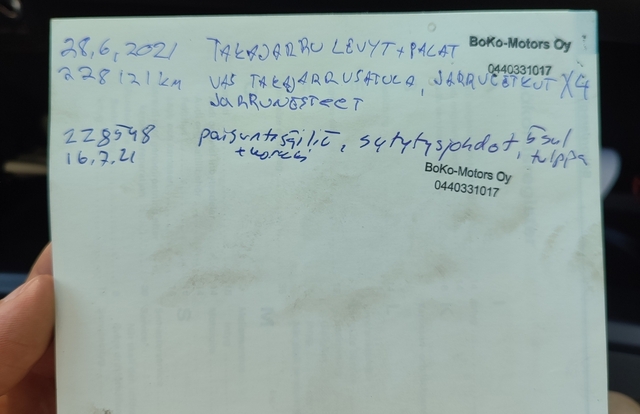 28.6.2021 TAKAJARRU LEVYT + PALAT
BoKo-Motors Oy
0440331017
228121 km VAS TAKAJARRUSATULA, JARRULETKUT X4
JARRUNESTEET
228548 paisuntasäiliö, sytytysjohdot,
16.7.21 + korkki tulppa
BoKo-Motors Oy
0440331017